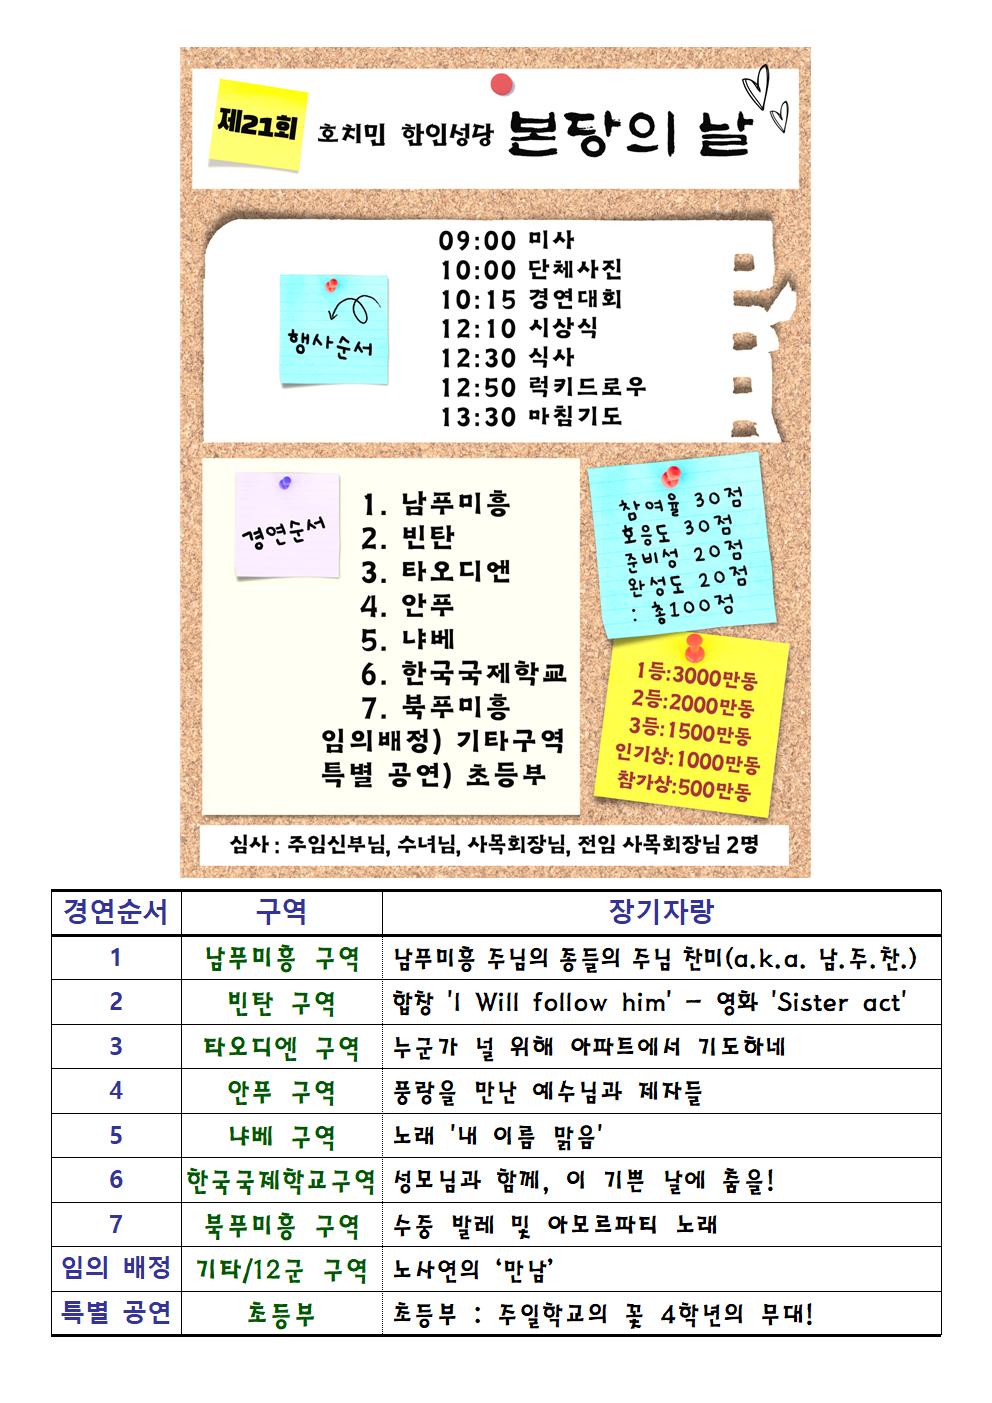 제21회 호치민 한인성당 본당의 날
행사순서
09:00 미사
10:00 단체사진
10:15 경연대회
12:10 시상식
12:30 식사
12:50 럭키드로우
13:30 마침기도
경연순서
1. 남푸미흥
2. 빈탄
3. 타오디앤
4. 안푸
5. 냐베
6. 한국국제학교
7. 북푸미흥
임의배정) 기타구역
특별 공연) 초등부
참여율 30점
호응도 30점
준비성 20점
완성도 20점
: 총100점
1등:3000만동
2등:2000만동
3등:1500만동
인기상:1000만동
참가상:500만동
심사 : 주임신부님, 수녀님, 사목회장님, 전임 사목회장님 2명
경연순서 구역 장기자랑
1 남푸미흥 구역 남푸미흥 주님의 종들의 주님 찬미(a.k.a. 남.주.찬.)
2 빈탄 구역 합창 'I Will follow him' - 영화 'Sister act'
3 타오디엔 구역 누군가 널 위해 아파트에서 기도하네
4 안푸 구역 풍랑을 만난 예수님과 제자들
5 냐베 구역 노래 '내 이름 맑음'
6 한국국제학교구역 성모님과 함께, 이 기쁜 날에 춤을!
7 북푸미흥 구역 수중 발레 및 아모르파티 노래
임의 배정 기타/12군 구역 노사연의 ‘만남’
특별 공연 초등부 초등부 : 주일학교의 꽃 4학년의 무대!